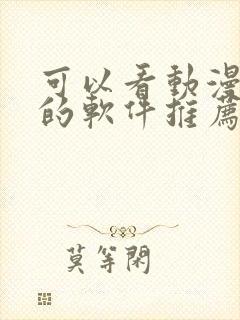 可以看動漫
的軟件推薦
莫等閑